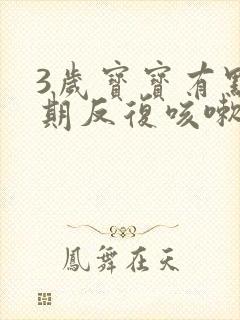 3歲寶寶有
期反復咳嗽
鳳舞在天